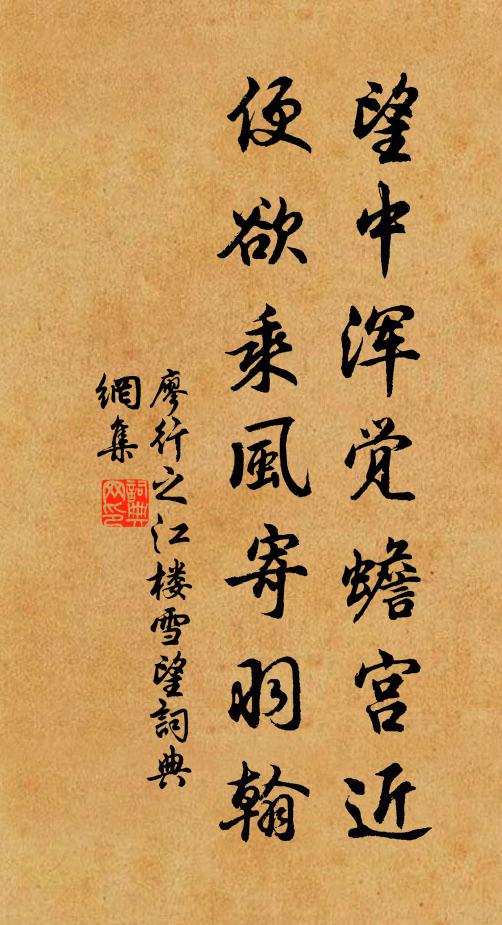 望中浑觉蟾宫近
便欲乘風寄羽翰
廖行之江楼雪望詞典
網集
詞典
网印